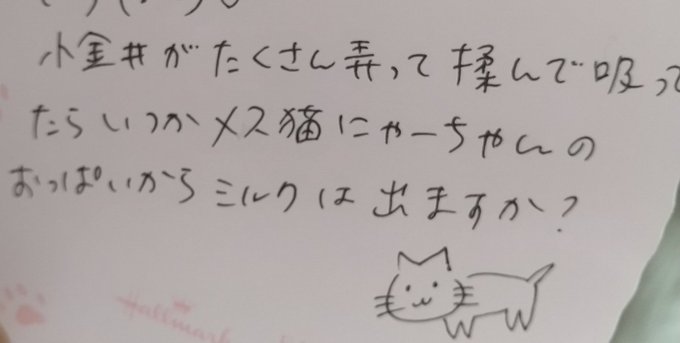 小金井がたくさん弄って揉んで吸って
たらいつかメス猫にゃーちゃんの
おっぱいからミルクは出ますか?
Hallmark